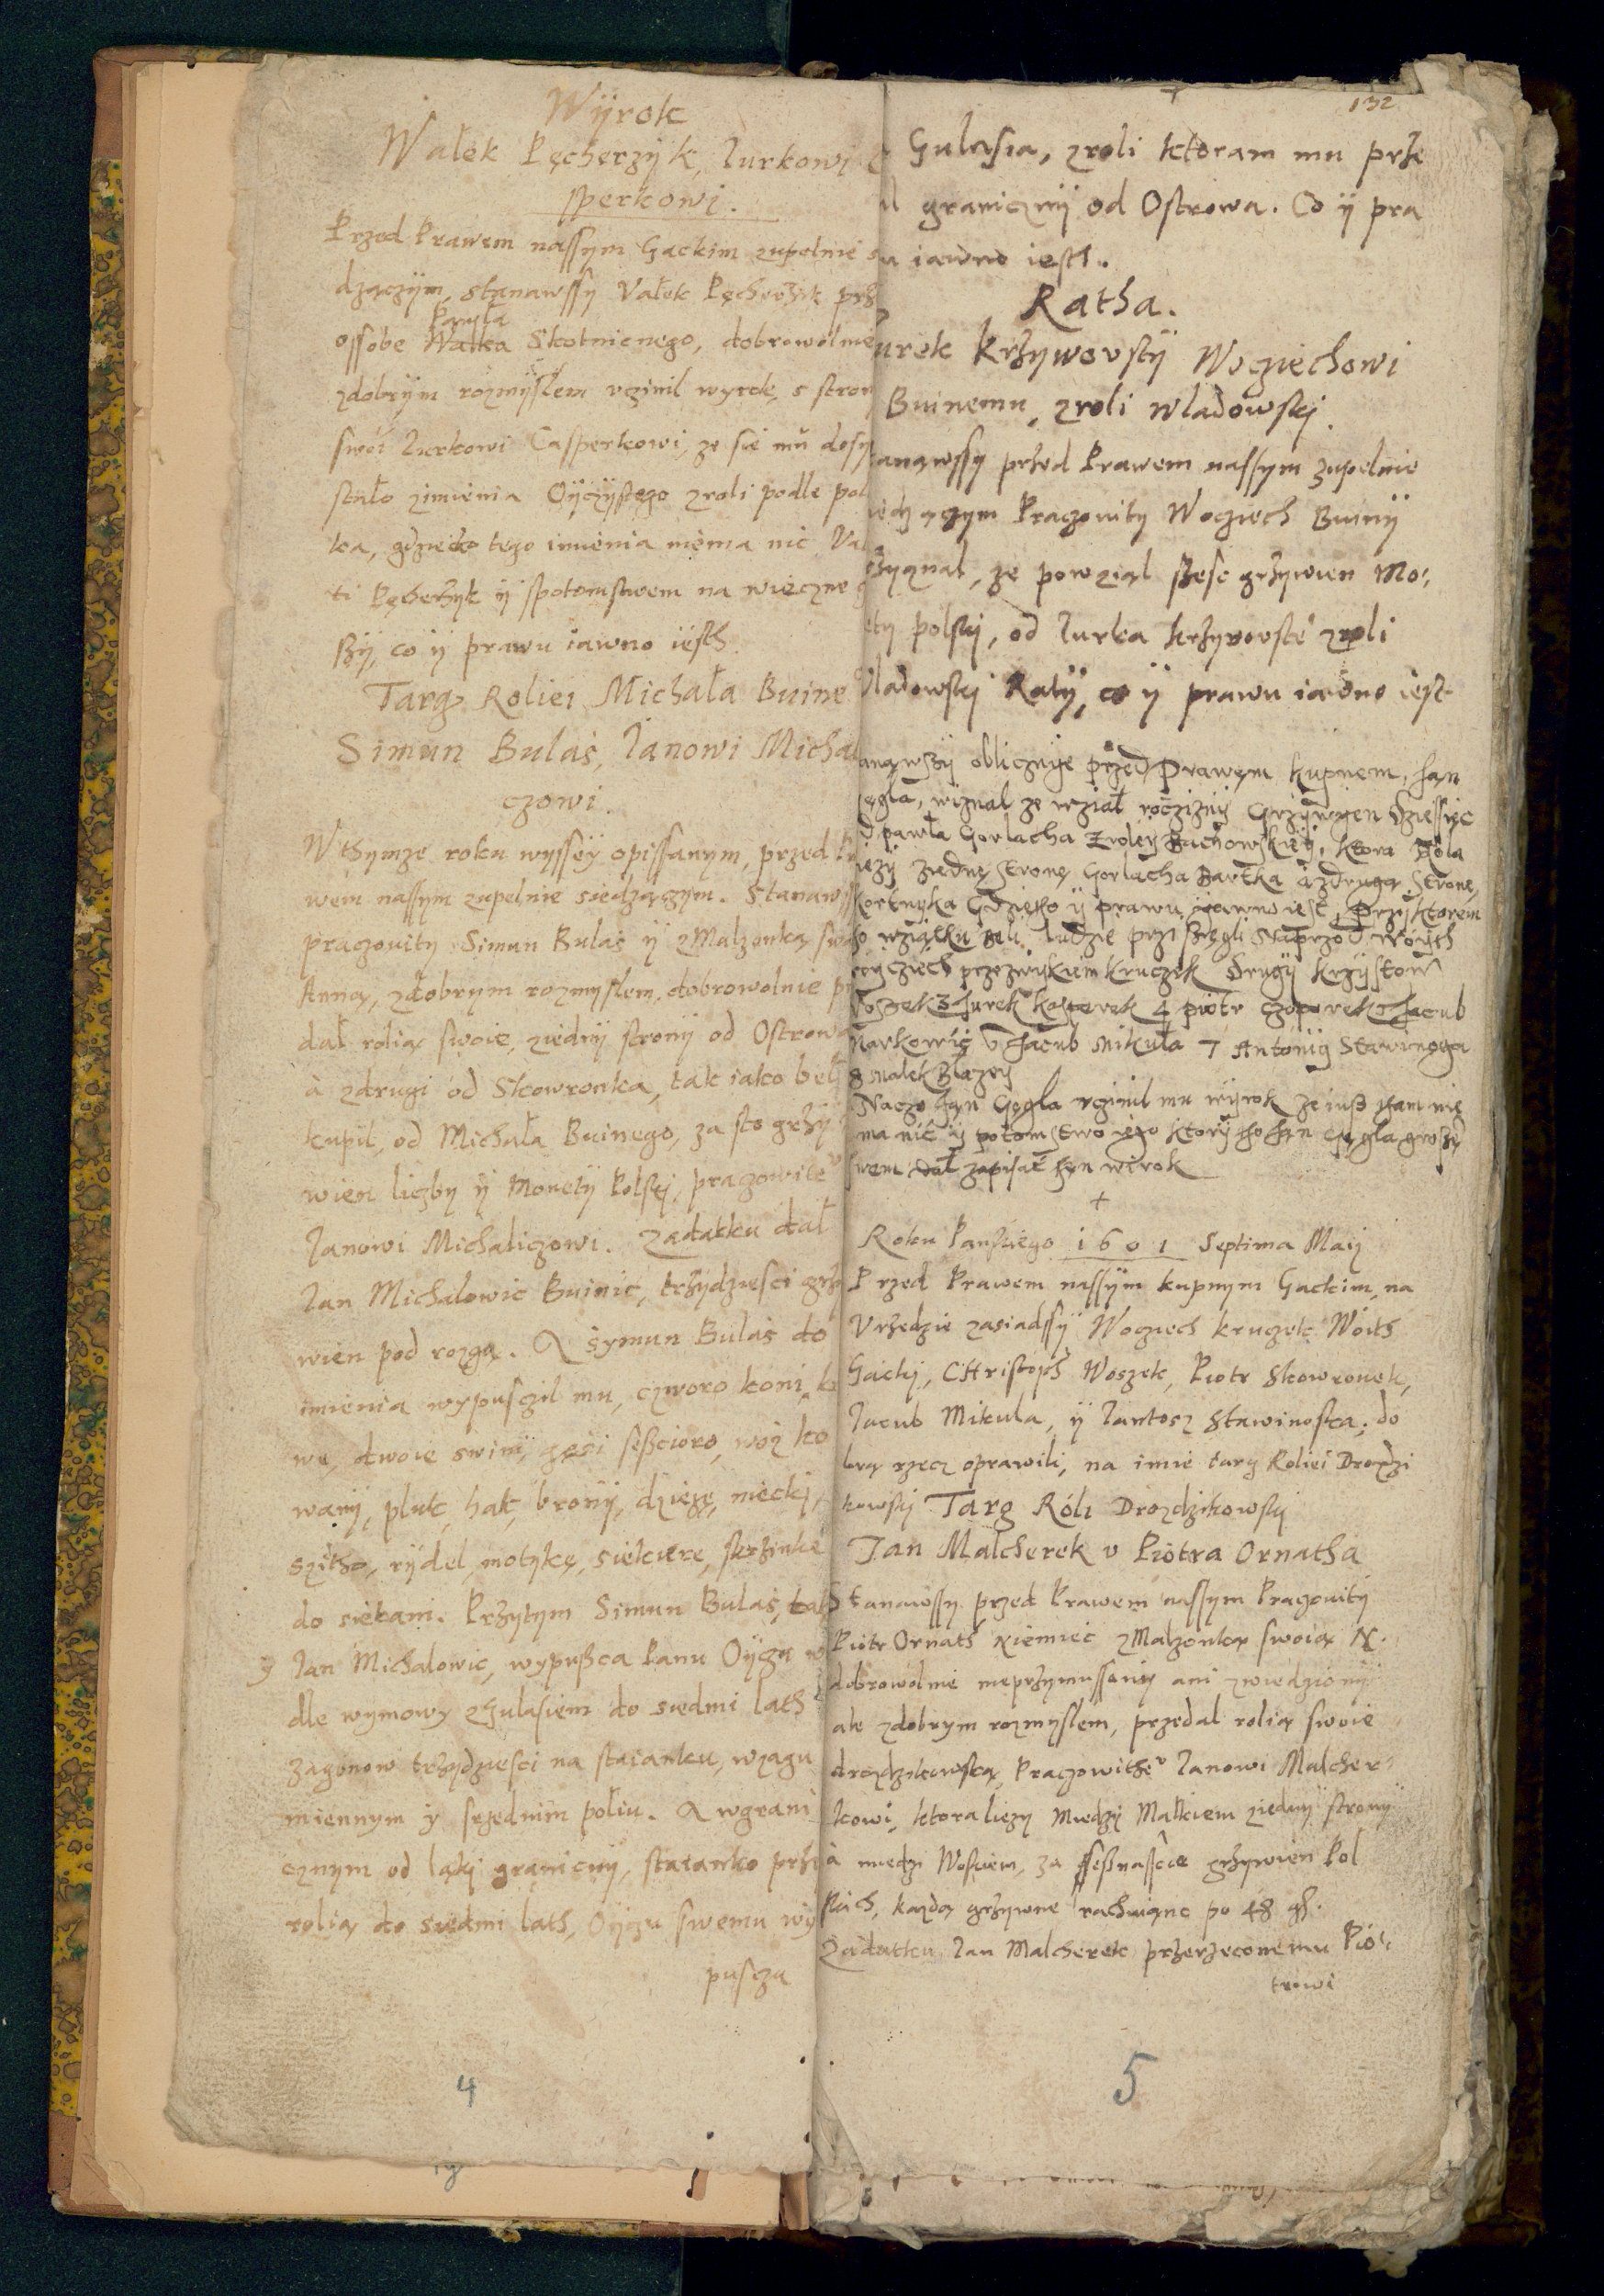 Wÿrok
Wałek Pęcherzÿk, Iurkowi
sperkowi.
Przed Prawem nassym Gackim zupelnie
dzączÿm, stanawssy Vałek Pęcherzik prz
Pawła
ossobe Wałka Skotnicnego, dobrowolnie
zdobrÿm rozmÿslem vczinil wyrok, s stron
swoi Iurkowi Casperkowi, ze sie mu dosy
stało zimienia Oÿczÿstego zroli podle pol
ka, gdziesko tego imienia niema nic Va
ti Pęcherzyk ÿ spotomstwem na wieczne
szÿ, co ÿ prawu iawno iesth.
Targ Roliei Michała Buine
Simun Bulaś, Ianowi Micha
czowi.
Wthymze roku wyssey opissanym, przed Pr
wem nassym zupelnie siedzączym. Stanaws
praczovity Simun Bulaś ÿ zMalzonką swo
Anną, zdobrym rozmyslem, dobrowolnie pr
dał rolią swoie, ziednÿ stronÿ od Ostrowa
à zdrugi od Skowronka, tak iako beł
kupil, od Michała Buinego, za sto grzÿ
wien liczby ÿ Monetÿ Polskj, praczowite
Ianowi Michaliczowi. Zadatku dał
Ian Michalowic Buinic, trzÿdziesci grzÿ
wien pod rozgą. A Symun Bulaś do
imienia wypusczil mu, czworo koni, k
wę, dwoie swinÿ, gęsi sesscioro, wóz ko
wanÿ, pluk, hak, bronÿ, dzieżę, niecki,
szitho, rÿdel, motykę, siekere, skrzinke
do siekani. Przytym Simun Bulaś, tak
y Ian Michalowic, wypussca Panu Oÿczu w
dle wymowy zGulasiem do siedmi lath
zagonow trzydziesci na staianku, wzagu
miennym y srzednim poliu. A wgrani
cznym od ląki granicnÿ, staianko prze
rolią do siedmi lath, Oÿczu swemu wÿ
puscza
4
132
Gulasia, zroli ktoram mu prze
graniczny od Ostrowa. Co ÿ pra
u iawno iesth.
Ratha.
urek Krzywovsty Woczięchowi
Buinemu, zroli wladowskj.
anąwssy przed Prawem nassym zupelnie
iedzączym Praczovity Woczięch Buinÿ
zyznal, ze powziąl szesc grzywien Mo,,
ety polskj, od Iurka krzyvovste zroli
Vladowskj Ratÿ, co ÿ prawu iawno iest.
anąwszÿ oblicznÿe przed Prawęm kupnem, Jąn
ęgla, wiznal ze wział roczizny Grziwięn dziessięc
d pawła Gorlacha zroley Bachowskieÿ, ktora Rola
ieżÿ ziednę stronę Gorlacha Bartka à zdrugą stronę,
kortnyka Gdziesko ÿ prawu iawno iest, przÿ ktorem
o wziątku beli ludzie przisięgli Naprzod woÿth
oyczięch przezwiskiem kruczęk drugÿ krzÿstow
oszek 3 Jurek kasperek 4 piotr 5 Jacub
Markowic 6 Jacub mikuła 7 Antonÿ Stawinoga
8 malek Blazey
Naczo Jąn Gęgla vczinil mu wÿrok ze iusz tam nię
ma nic ÿ potomstwo iego ktorÿ to Jąn cęgla groszę
swem dał zapisać tęn wirok
+
Roku Panskiego 1601 Septima Maij
Przed Prawem nassÿm kupnym Gackim, na
Vrzedzie zasiadssÿ Woczięch kruczek Woith
Gackj, CHristoph Woszek, Piotr Skowronek,
Iacub Mikula, ÿ Iantosz Stawinoska, do
brą rzecz oprawili, na imie targ Roliei Drozdzi
kowskj Targ Róli Drozdzikowskj
Jan Malcherek v Piotra Ornatha
Stanawssy przed Prawem nassym Praczovity
Piotr Ornath Niemiec zMalzonką swoią N.
dobrowolnie nieprzymussonÿ ani zwiedzionÿ
ale zdobrym rozmyslem, przedal rolią swoie
drozdzikowską Praczowithe Ianowi Malcher,,
kowi, ktora liezy miedzÿ Małkiem ziednÿ stronÿ
à miedzi Woskiem, za sessnascie grzywien Pol
skich, kazdą grzywne rachuiąnc po 48 gr.
Zadatku Ian Malcherek przerzeconemu Pio,,
trowi
5